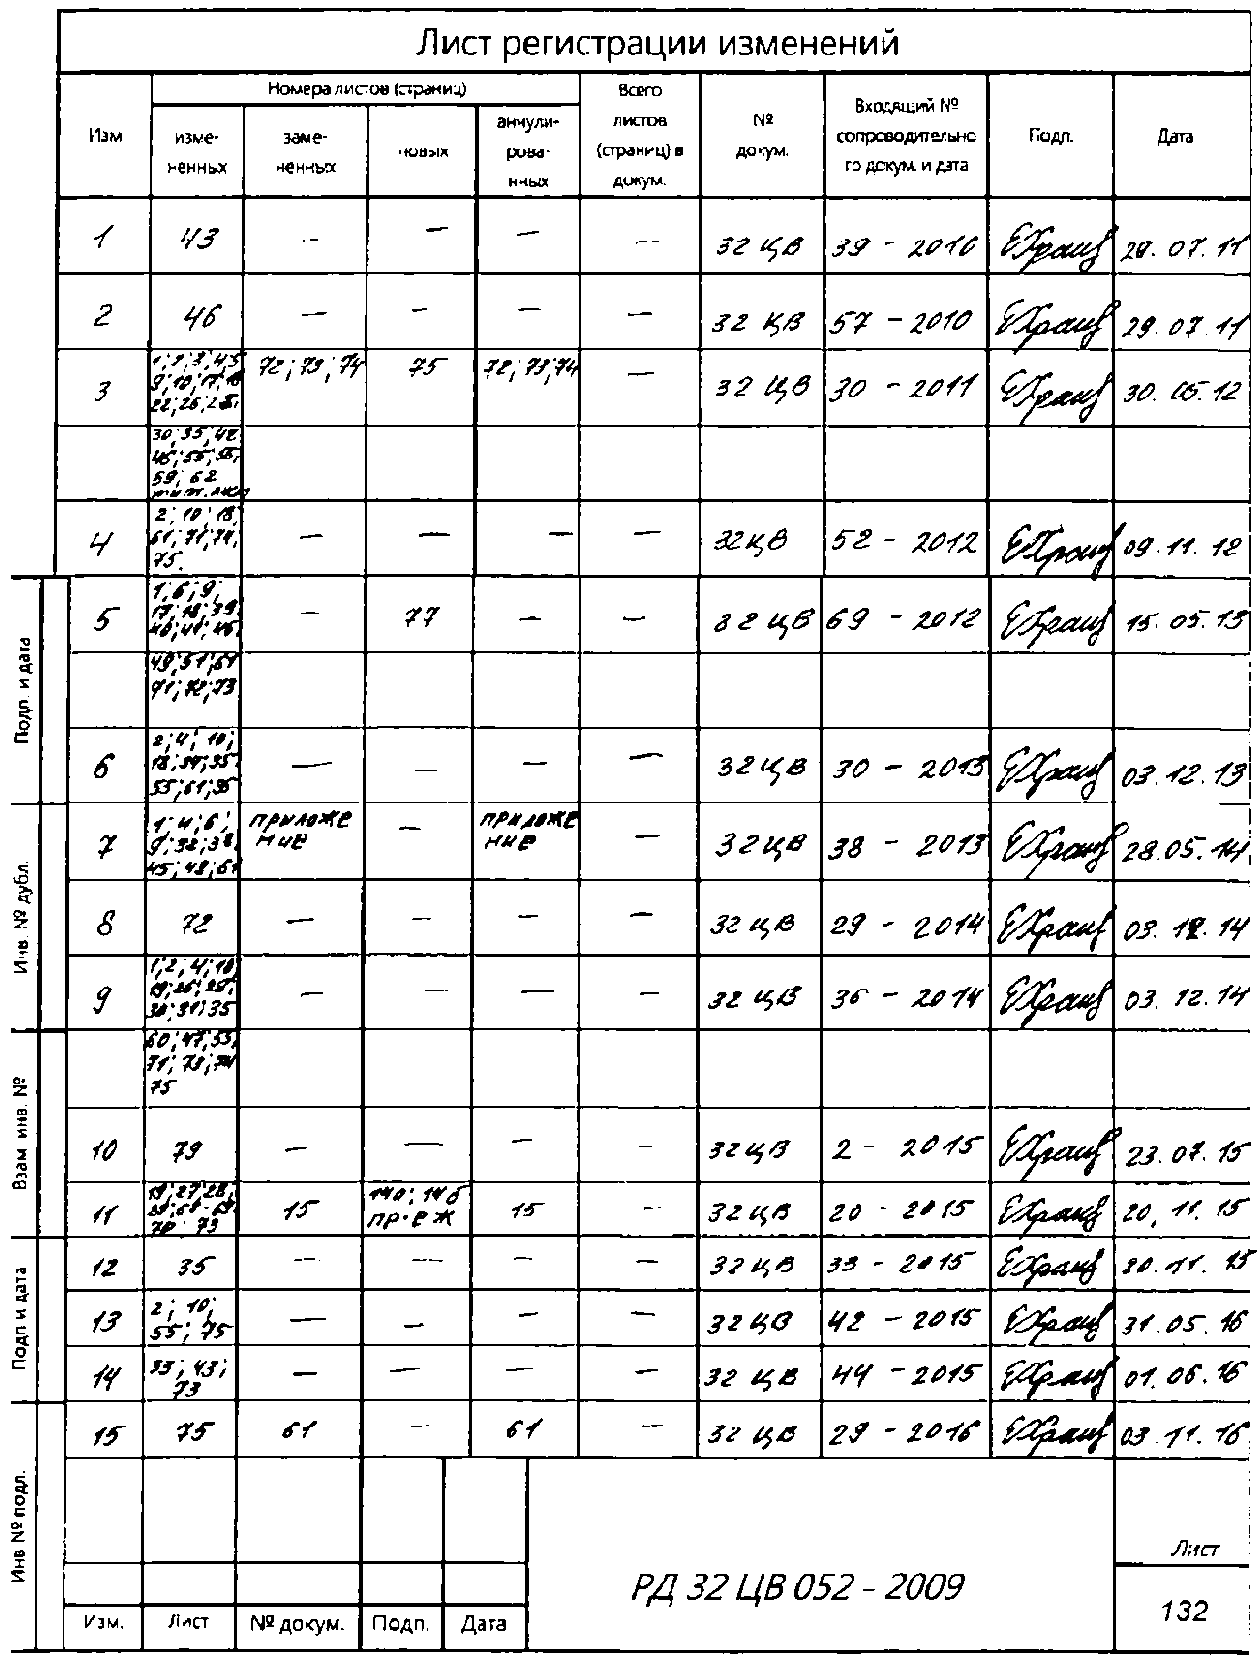 Лист регистрации изменений
Изм
Номера листов (страниц)
изме-
ненных
заме-
ненных
новых
аннули-
рова-
нных
Всего
листов
(страниц) в
докум.
№
докум.
Входящий №
сопроводительно
го докум. и дата
Подп.
Дата
1 43 – – – – 32 ЦВ 39 - 2010 29.07.11
2 46 – – – – 32 ЦВ 57 - 2010 29.07.11
3 72; 73; 74 75 72; 73; 74 – 32 ЦВ 30 - 2011 30.05.12
30; 35; 42
59; 62
4 2; 10; 18;
61; 71; 74;
75.
– – – – 32 ЦВ 52 - 2012 09.11.12
5 1; 6; 9;
17; 18; 39
– 77 – – 32 ЦВ 69 - 2012 15.05.13
49; 51; 61
71; 72; 73
6 2; 4; 10;
18; 34; 35
– – – – 32 ЦВ 30 - 2013 03.12.13
7 1; 4; 6;
9; 32; 38
45; 48; 61
приложе
ние
– приложе
ние
– 32 ЦВ 38 - 2013 28.05.14
8 72 – – – – 32 ЦВ 29 - 2014 03.12.14
9 1; 2; 4; 10
– – – – 32 ЦВ 36 - 2014 03.12.14
60; 47; 53;
71; 73; 74
75
10 79 – – – – 32 ЦВ 2 - 2015 23.07.15
11 19; 27; 28;
70; 73
15 14а; 14б
15 – 32 ЦВ 20 - 2015 20.11.15
12 35 – – – – 32 ЦВ 33 - 2015 20.11.15
13 2; 10;
55; 75
– – – – 32 ЦВ 42 - 2015 31.05.16
14 33; 43;
73
– – – – 32 ЦВ 44 - 2015 01.06.16
15 75 61 – 61 – 32 ЦВ 29 - 2016 03.11.16
Подп. и дата
Инв. № дубл.
Взам. инв. №
Подп и дата
Инв № подл.
Изм. Лист № докум. Подп. Дата
РД 32 ЦВ 052 - 2009
Лист
132